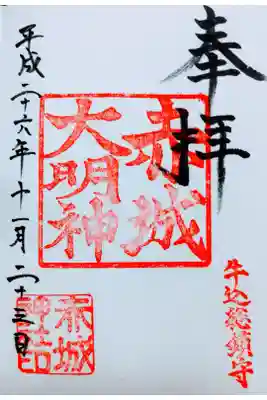 奉拝
牛込総鎮守
赤城
大明神
平成二十六年十一月二十三日
赤城
神詰